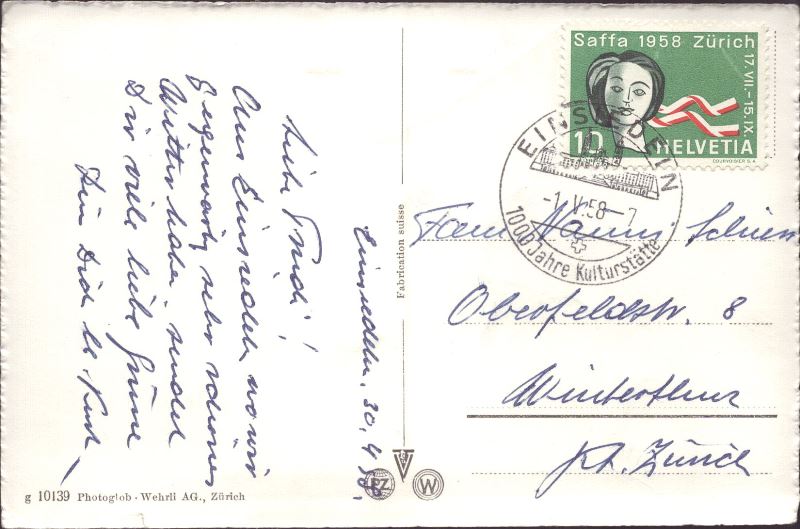 Einsiedeln, 30. 4. 58.
Liebe Trudi!
Aus Einsiedeln wo wir
gegenwärtig sehr schönes
Wetter haben sendet
Dir viele liebe Grüsse
Dein Dich lb. Kurt
Fabrication suisse
g 10139 Photoglob - Wehrli AG., Zürich
PZ
W
Saffa 1958 Zürich
17. VII. - 15. IX.
10
HELVETIA
COURVOISIER S.A.
EINSIEDELN
-1.V.58-7
1000 Jahre Kulturstätte
Hanns
Oberfeldstr. 8
Winterthur
Kt. Zürich